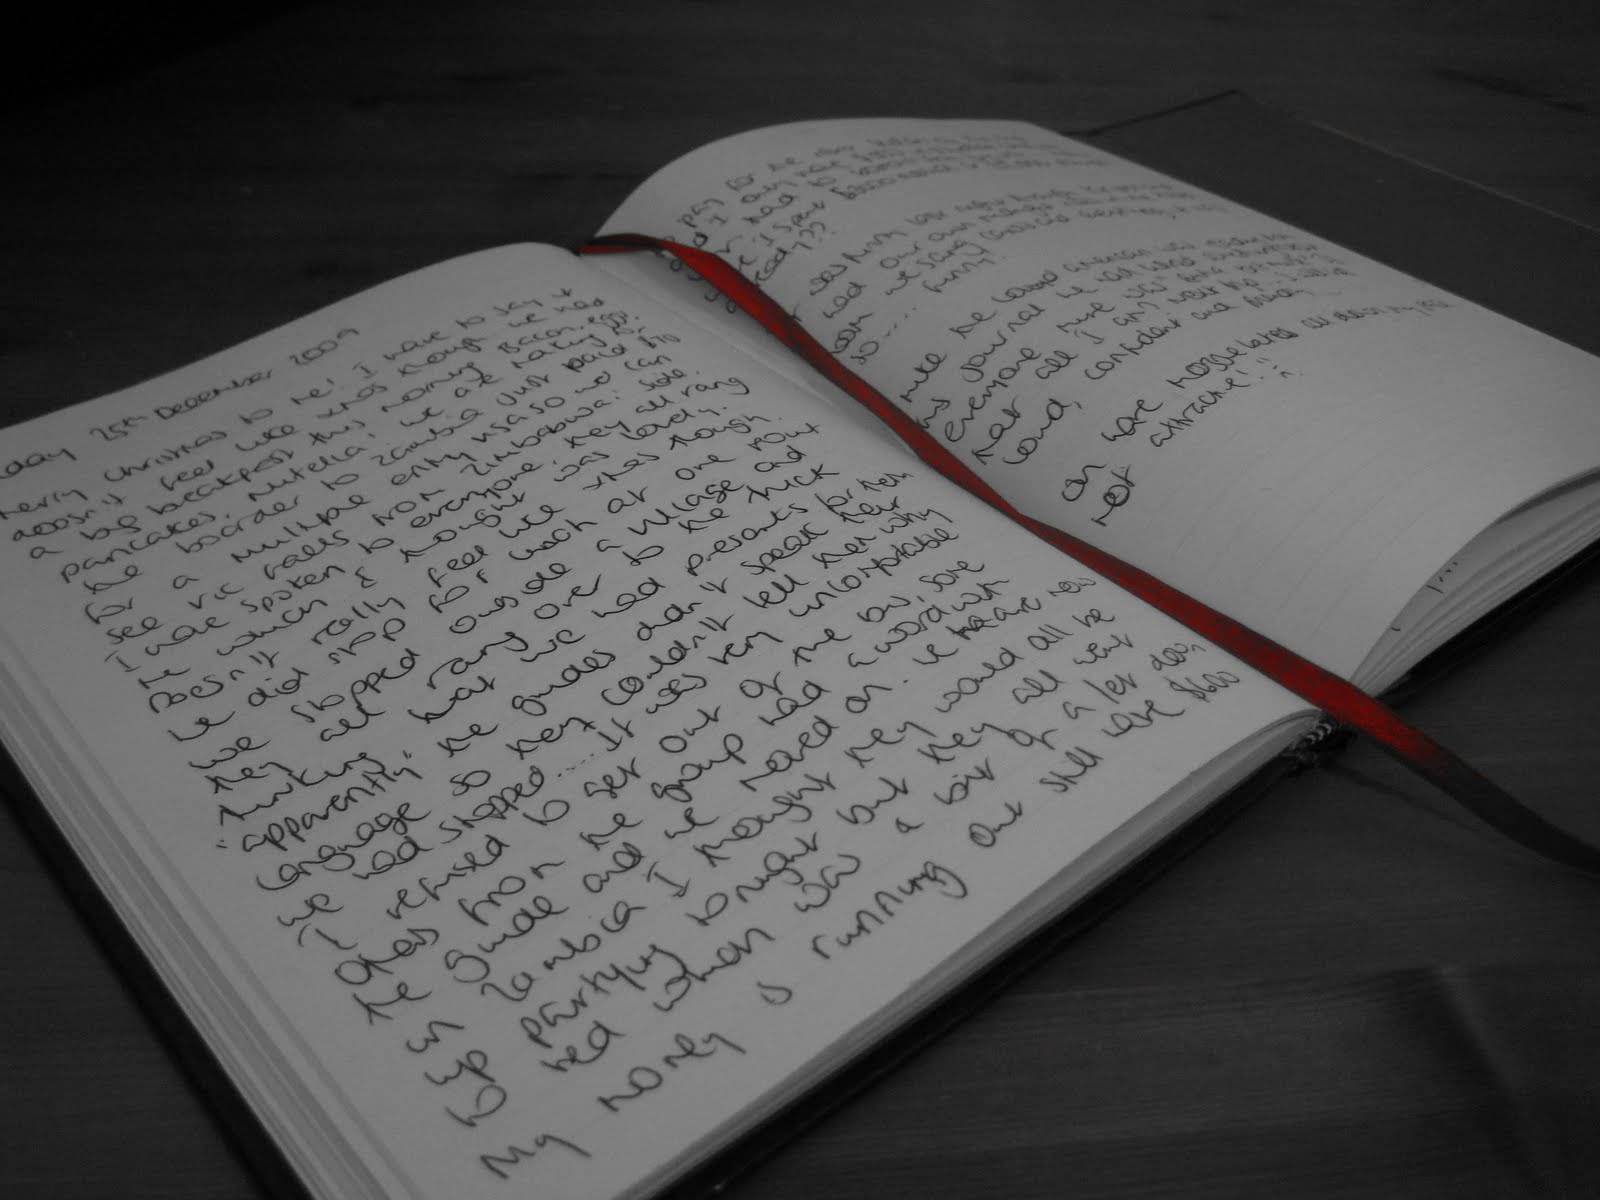 day 25th December 2009
Merry Christmas to me! I have to say it
doesn't feel like xmas though. We had
a big breakfast this morning. Bacon, eggs,
pancakes, nutella! We are making
the boarder to Zambia (Just paid $
for a multiple entry visa so we can
see vic falls from Zimbabwa side.
I have spoken to everyone, they all rang
he which I thought was lovely.
Doesn't really feel like xmas though.
We did stop for lunch at one point
we stopped outside a village and
they all rang over to the truck
thinking that we had presents for them
"apparently" the guides didn't speak their
language so they couldn't tell them why
we had stopped..... It was very uncomfortable
I refused to get out of the bus, some
others from the group had a word with
the guide and we moved on. We are now
in Zambia I thought they would all be
up partying tonight but they all went
to bed which was a bit of a let down
My money is running out still have $600
pay for the
I only have
had to
I spent
already??
was funny last night though
had our own
we sang
so..... funny!
the
this journal he
everyone
that all I am
loud, confident and
Oh have mosquito bites all down my
not attractive!